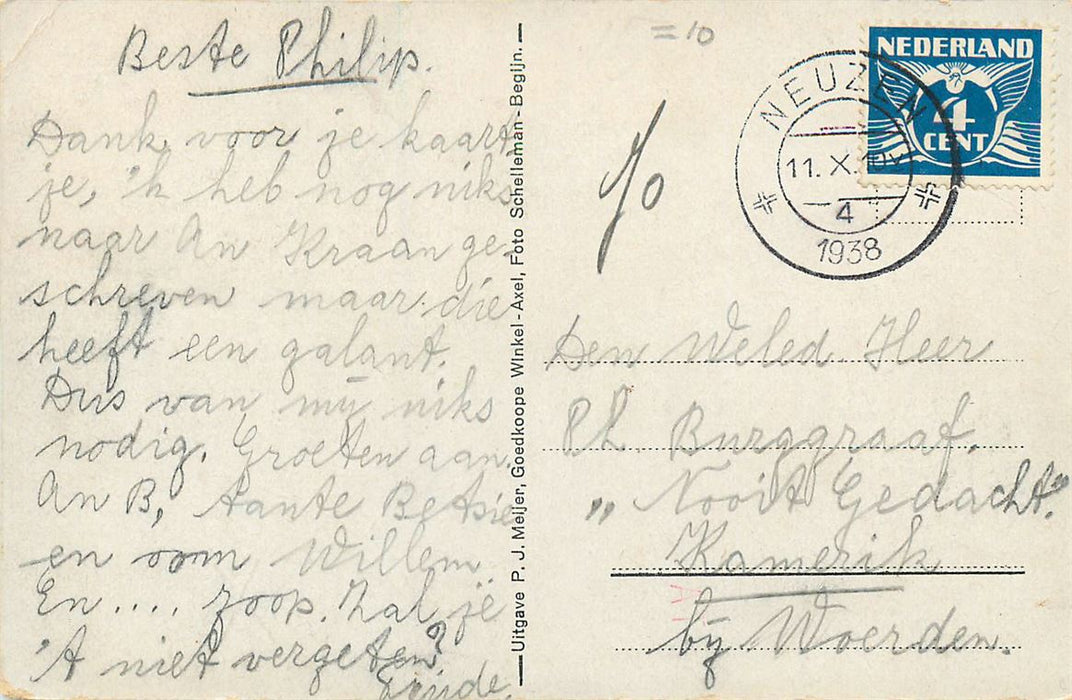 Beste Philip.
Dank voor je kaart
je, 'k heb nog niks
naar An Kraan ge-
schreven maar die
heeft een galant.
Dus van mij niks
nodig. Groeten aan
An B, tante Betsie
en oom Willem
En .... zoop. Zal je
't niet vergeten?
Uitgave P. J. Meijer, Goedkoope Winkel - Axel, Foto Schelleman - Begijn.
=10
NEDERLAND
4
CENT
NEUZEN
11. X.
4
1938
Den Weled. Heer
Ph. Burggraaf.
„Nooit Gedacht."
Kamerik
bij Woerden.